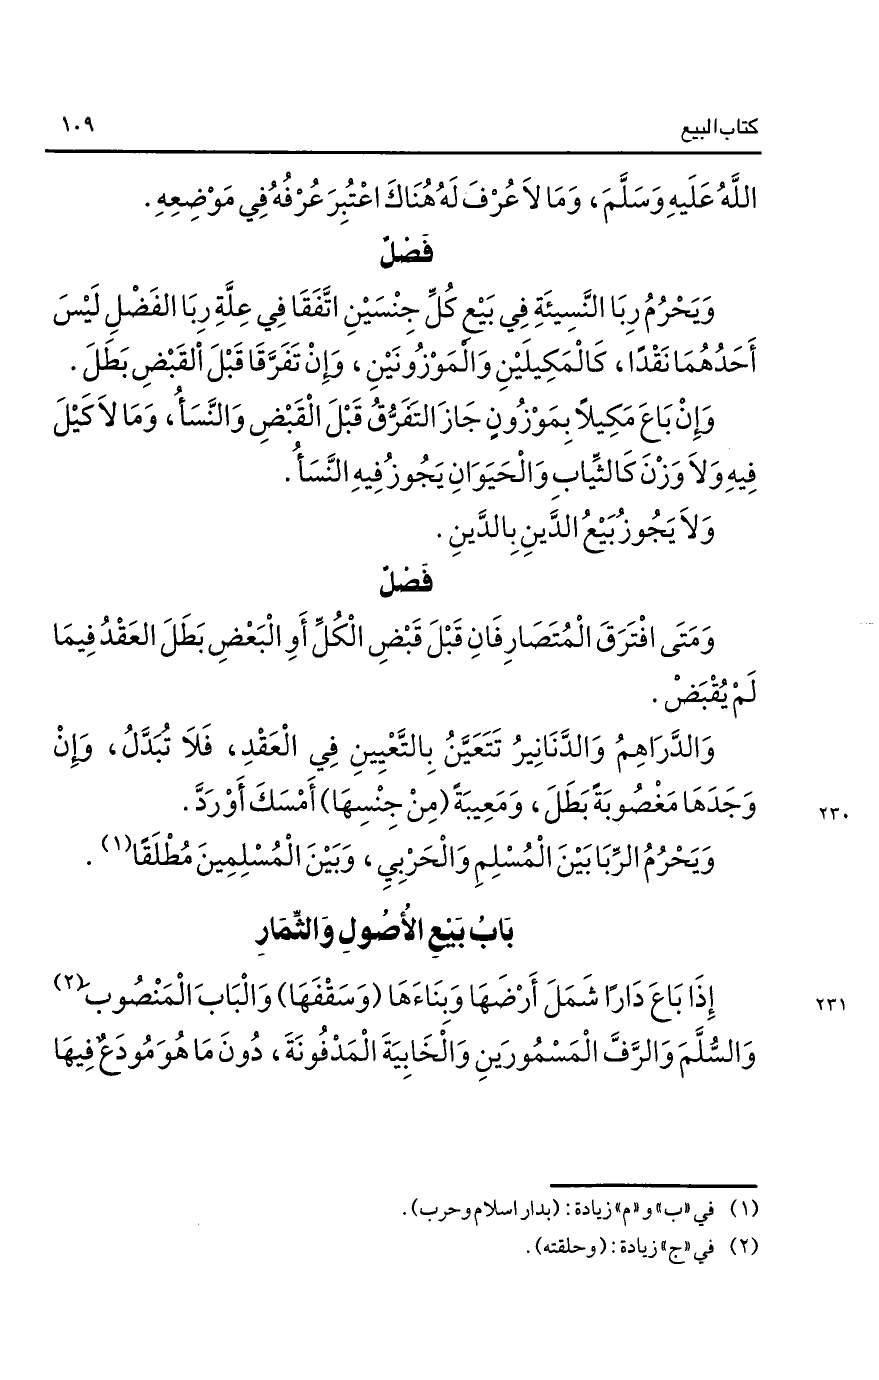 كتاب البيع ١٠٩
اللَّهُ عَلَيهِ وَسَلَّمَ، وَمَا لاَ عُرْفَ لَهُ هُنَاكَ اعْتُبِرَ عُرْفُهُ فِي مَوْضِعِهِ.
فَصْلٌ
وَيَحْرُمُ رِبَا النَّسِيئَةِ فِي بَيْعِ كُلِّ جِنْسَيْنِ اتَّفَقَا فِي عِلَّةِ رِبَا الفَضْلِ لَيْسَ
أَحَدُهُمَا نَقْدًا، كَالْمَكِيلَيْنِ وَالْمَوْزُونَيْنِ، وَإِنْ تَفَرَّقَا قَبْلَ القَبْضِ بَطَلَ.
وَإِنْ بَاعَ مَكِيلاً بِمَوْزُونٍ جَازَ التَفَرُّقُ قَبْلَ الْقَبْضِ وَالنَّسَأُ، وَمَا لاَ كَيْلَ
فِيهِ وَلاَ وَزْنَ كَالثِّيابِ وَالْحَيَوَانِ يَجُوزُ فِيهِ النَّسَأُ.
وَلاَ يَجُوزُ بَيْعُ الدَّينِ بِالدَّينِ.
فَصْلٌ
وَمَتَى افْتَرَقَ الْمُتَصَارِفَانِ قَبْلَ قَبْضِ الْكُلِّ أَوِ الْبَعْضِ بَطَلَ العَقْدُ فِيمَا
لَمْ يُقْبَضْ.
وَالدَّرَاهِمُ وَالدَّنَانِيرُ تَتَعَيَّنُ بِالتَّعْيِينِ فِي الْعَقْدِ، فَلاَ تُبَدَّلُ، وَإِنْ
وَجَدَهَا مَغْصُوبَةً بَطَلَ، وَمَعِيبَةً (مِنْ جِنْسِهَا) أَمْسَكَ أَوْ رَدَّ. ٢٣٠
وَيَحْرُمُ الرِّبَا بَيْنَ الْمُسْلِمِ وَالْحَرْبِي، وَبَيْنَ الْمُسْلِمِينَ مُطْلَقًا(١).
بَابُ بَيْعِ الأُصُولِ وَالثِّمَارِ
إِذَا بَاعَ دَارًا شَمَلَ أَرْضَهَا وَبِنَاءَهَا (وَسَقْفَهَا) وَالْبَابَ الْمَنْصُوبَ(٢) ٢٣١
وَالسُّلَّمَ وَالرَّفَّ الْمَسْمُورَينِ وَالْخَابِيَةَ الْمَدْفُونَةَ، دُونَ مَا هُوَ مُودَعٌ فِيهَا
(١) في «ب» و«م» زيادة: (بدار اسلام وحرب).
(٢) في «ج» زيادة: (وحلقته).